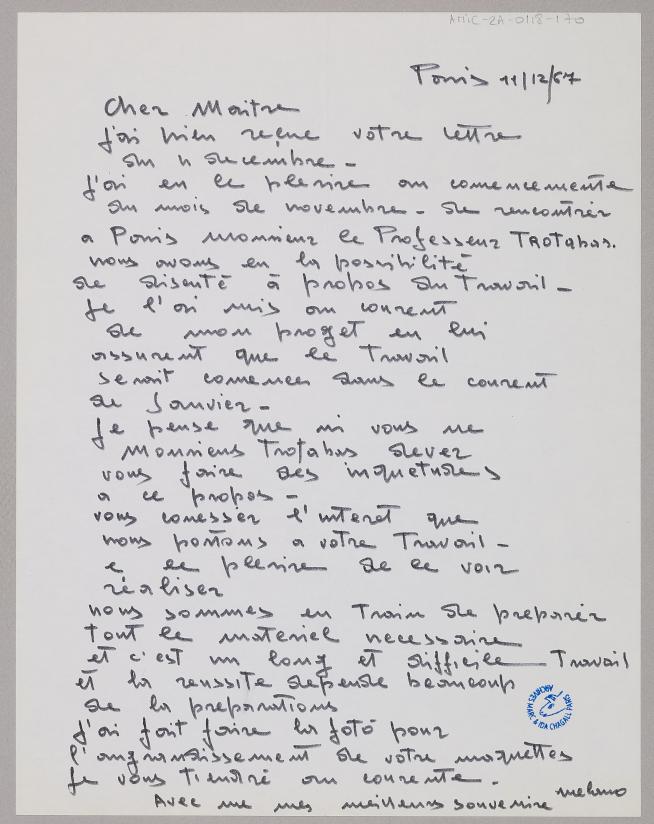 AMIC-2A-0118-170
Paris 11/12/67
Cher Maitre
J'ai bien reçue votre lettre
du 4 decembre -
J'ai eu le plesire au comencemente
du mois de novembre - de rencontrér
a Paris Monsieur le Professeur TROTABAS.
nous avons eu la possibilité
de discuté à propos du Travail -
Je l'ai mis au courent
de mon proget en lui
assurent que le Travail
serait comencer dans le courent
de Janvier -
Je pense que ni vous ne
Monsieurs Trotabas dever
vous faire des inquetudes
a ce propos -
vous conesser l'interet que
nous portons a votre Travail -
e le plesire de le voir
réaliser
nous sommes en Train de preparér
tout le materiel necessaire
et c'est un long et difficile Travail
et la reussite depende beaucoup
de la preparations
J'ai fait faire la fotó pour
l'angrandissement de votre maquettes
Je vous tiendré au courente.
Avec me mes meilleurs souvenire
melano
ARCHIVES MARC & IDA CHAGALL PARIS